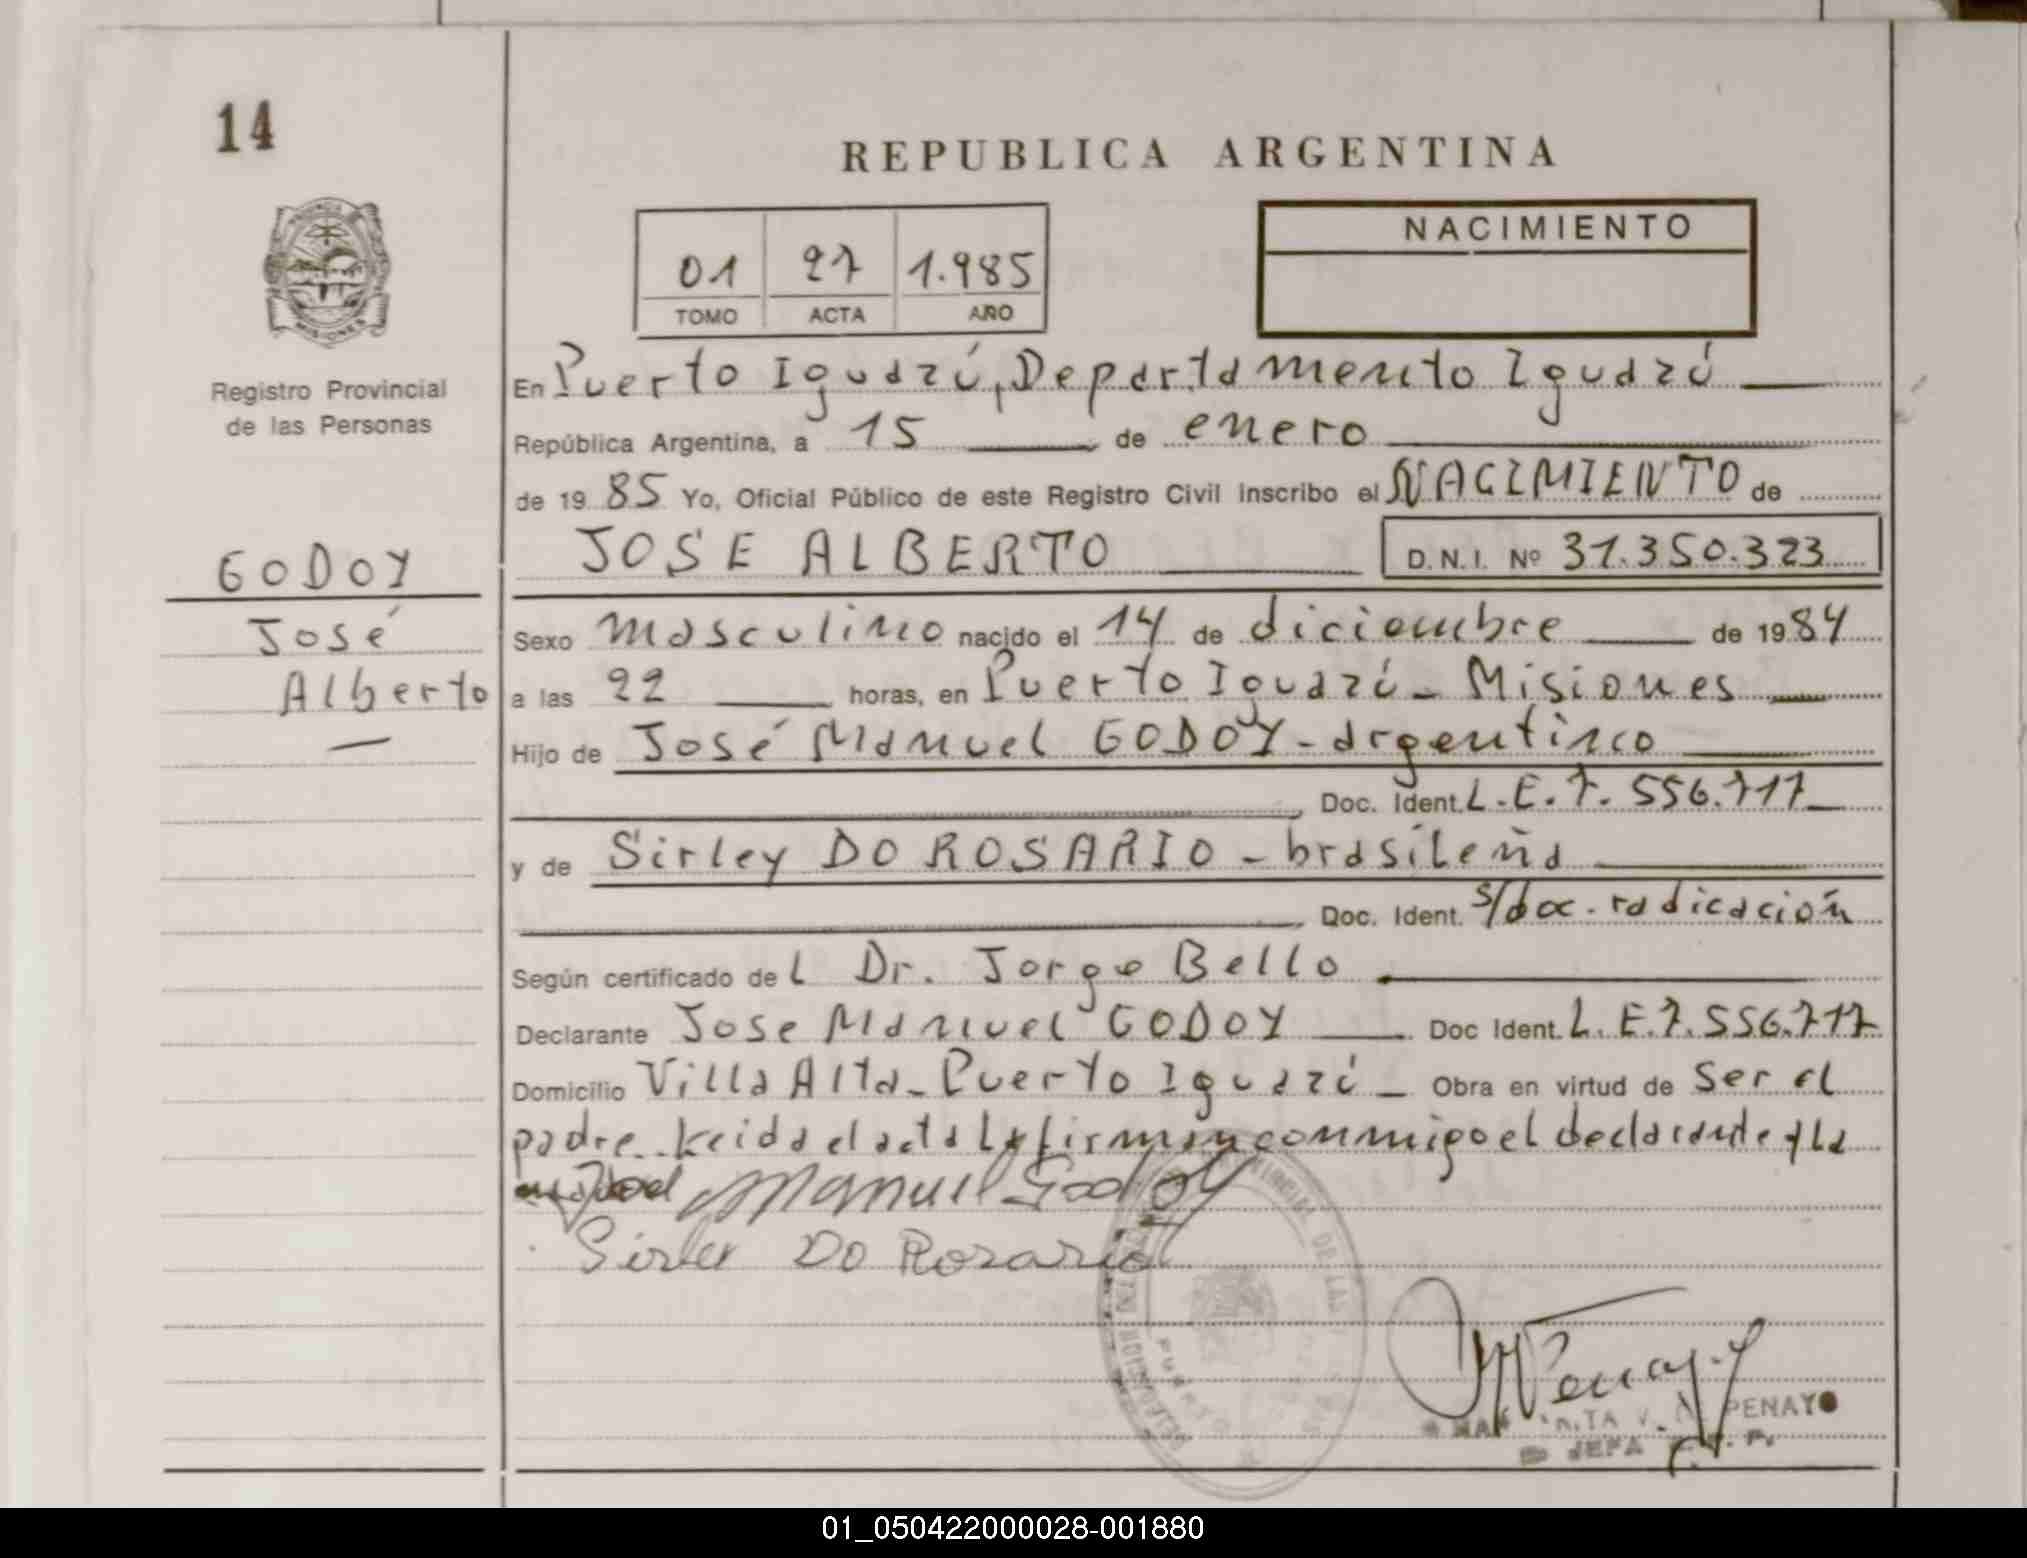 14
REPUBLICA ARGENTINA
PROVINCIA
MISIONES
Registro Provincial
de las Personas
01 27 1.985
TOMO ACTA AÑO
NACIMIENTO
GODOY
José
Alberto
—
En Puerto Iguazú, Departamento Iguazú
República Argentina, a 15 de enero
de 19 85 Yo, Oficial Público de este Registro Civil inscribo el NACIMIENTO de
JOSE ALBERTO D.N.I. Nº 31.350.323
Sexo masculino nacido el 14 de diciembre de 19 84
a las 22 horas, en Puerto Iguazú - Misiones
Hijo de José Manuel GODOY - argentino
Doc. Ident. L.E. 7. 556.717
y de Sirley DO ROSARIO - brasileña
Doc. Ident. s/doc. radicación
Según certificado de L Dr. Jorge Bello
Declarante Jose Manuel GODOY Doc Ident. L.E. 7. 556.717
Domicilio Villa Alta - Puerto Iguazú - Obra en virtud de Ser el
padre. Leida el acta la firman conmigo el declarante y la
Manuel Godoy
Sirley Do Rosario
DE LAS
PUERTO
Penayo
PENAYO
JEFA
01_050422000028-001880